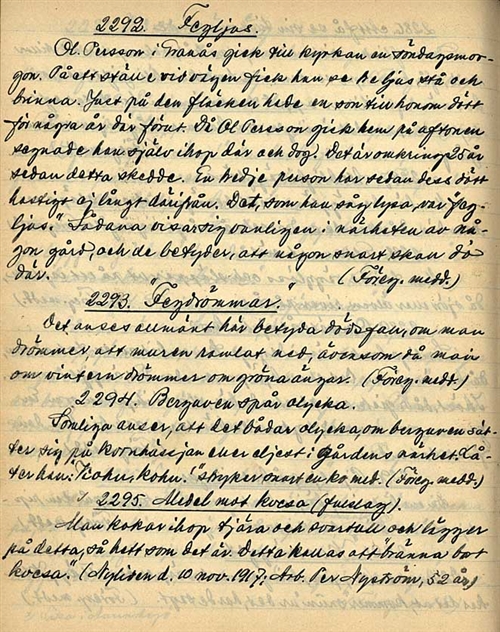 2292. Fegljus.
Ol Persson i Tranås gick till kyrkan en söndagsmor-
gon. På ett ställe vid vägen fick han se he ljus stå och
brinna. Just på den fläcken hade en son till honom dött
för några år där förut. Då Ol Persson gick hem på aftonen
segnade han själv ihop där och dog. Det är omkring 25 år
sedan detta skedde. En tredje person har sedan dess dött
hastigt ej långt därifrån. Det, som han såg lysa, var "feg-
ljus." Sådana visar sig vanligen i närheten av nå-
gon gård, och de betyder, att någon snart skall dö
där. (Föreg. medd.)
2293. "Fegdrömmar."
Det anses allmänt här betyda dödsfall, om man
drömmer, att muren ramlat ned, ävensom då man
om vintern drömmer om gröna ängar. (Föreg. medd.)
2294. Berguven spår olycka.
Somliga anser, att det bådar olycka, om berguven sät-
ter sig på kornhässjan eller eljest i gårdens närhet. Lå-
ter han: "Kohu, kohu!" stryker snart en ko med. (Föreg. medd.)
2295. Medel mot kvesa (fulslag).
Man kokar ihop tjära och svartull och lägger
på detta, så hett som det är. Detta kallas att "bränna bort
kvesa." (Nyliden d. 10 nov. 1917. Arb. Per Nyström, 52 år)